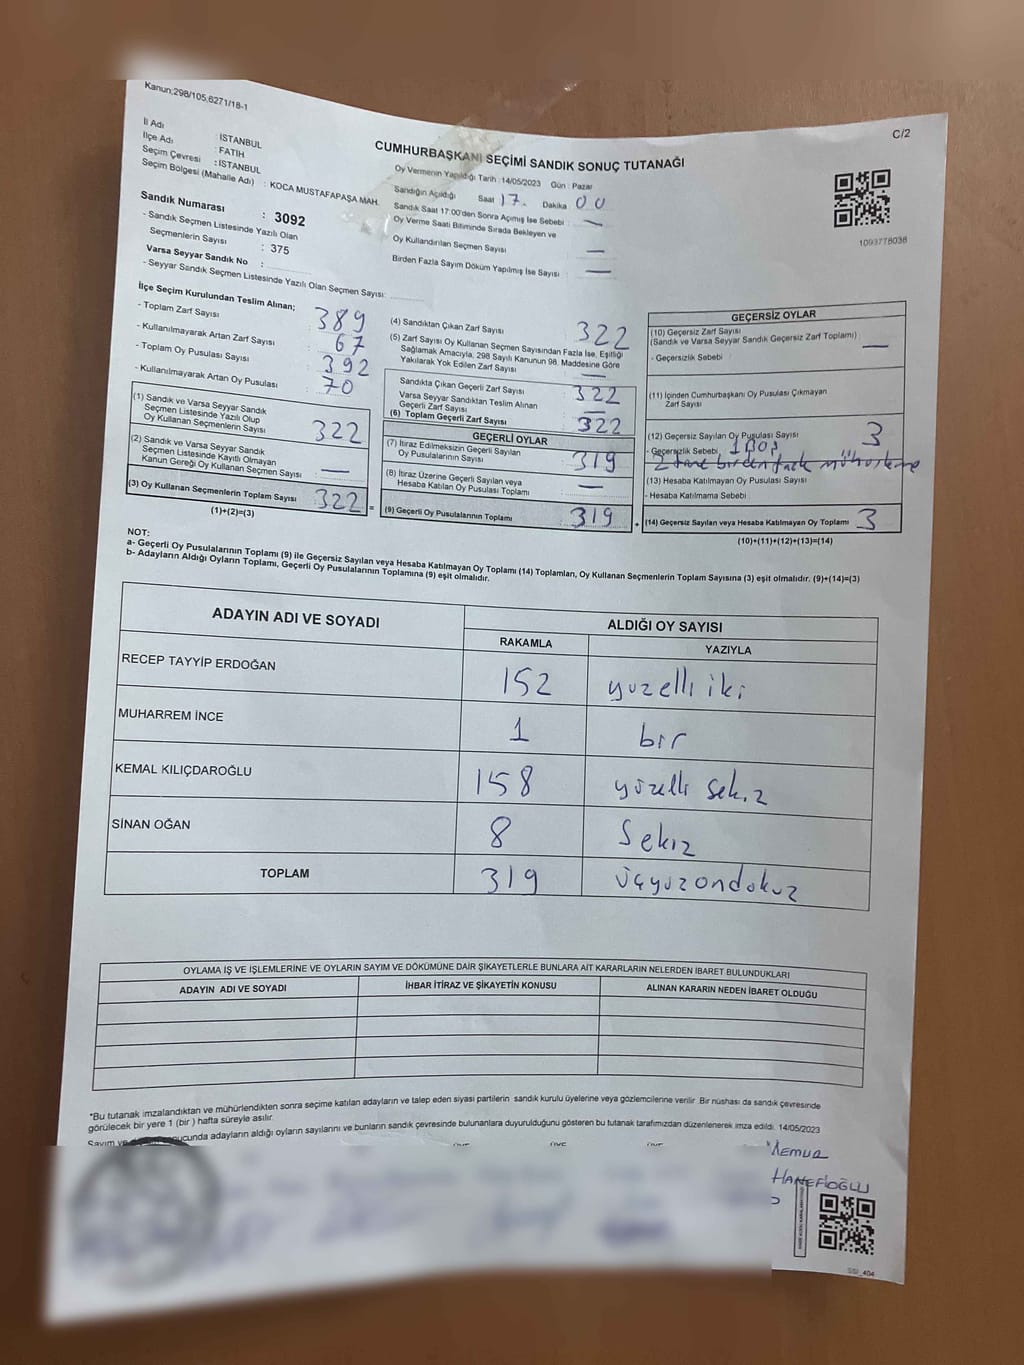 Kanun;298/105,6271/18-1
C/2
İl Adı : İSTANBUL
İlçe Adı : FATİH
Seçim Çevresi : İSTANBUL
Seçim Bölgesi (Mahalle Adı) : KOCA MUSTAFAPAŞA MAH.
Sandık Numarası : 3092
- Sandık Seçmen Listesinde Yazılı Olan
Seçmenlerin Sayısı : 375
Varsa Seyyar Sandık No :
- Seyyar Sandık Seçmen Listesinde Yazılı Olan Seçmen Sayısı:
CUMHURBAŞKANI SEÇİMİ SANDIK SONUÇ TUTANAĞI
Oy Vermenin Yapıldığı Tarih : 14/05/2023 Gün : Pazar
Sandığın Açıldığı Saat 17. Dakika 00
Sandık Saat 17:00'den Sonra Açılmış İse Sebebi : —
Oy Verme Saati Bitiminde Sırada Bekleyen ve
Oy Kullandırılan Seçmen Sayısı : —
Birden Fazla Sayım Döküm Yapılmış İse Sayısı : —
1093778038
İlçe Seçim Kurulundan Teslim Alınan;
- Toplam Zarf Sayısı : 389
- Kullanılmayarak Artan Zarf Sayısı : 67
- Toplam Oy Pusulası Sayısı : 392
- Kullanılmayarak Artan Oy Pusulası : 70
(1) Sandık ve Varsa Seyyar Sandık
Seçmen Listesinde Yazılı Olup
Oy Kullanan Seçmenlerin Sayısı : 322
(2) Sandık ve Varsa Seyyar Sandık
Seçmen Listesinde Kayıtlı Olmayan
Kanun Gereği Oy Kullanan Seçmen Sayısı : —
(3) Oy Kullanan Seçmenlerin Toplam Sayısı : 322 =
(1)+(2)=(3)
(4) Sandıktan Çıkan Zarf Sayısı : 322
(5) Zarf Sayısı Oy Kullanan Seçmen Sayısından Fazla İse, Eşitliği
Sağlamak Amacıyla, 298 Sayılı Kanunun 98. Maddesine Göre
Yakılarak Yok Edilen Zarf Sayısı : —
Sandıkta Çıkan Geçerli Zarf Sayısı : 322
Varsa Seyyar Sandıktan Teslim Alınan
Geçerli Zarf Sayısı : —
(6) Toplam Geçerli Zarf Sayısı : 322
GEÇERLİ OYLAR
(7) İtiraz Edilmeksizin Geçerli Sayılan
Oy Pusulalarının Sayısı : 319
(8) İtiraz Üzerine Geçerli Sayılan veya
Hesaba Katılan Oy Pusulası Toplamı : —
(9) Geçerli Oy Pusulalarının Toplamı : 319 +
GEÇERSİZ OYLAR
(10) Geçersiz Zarf Sayısı
(Sandık ve Varsa Seyyar Sandık Geçersiz Zarf Toplamı) : —
- Geçersizlik Sebebi :
(11) İçinden Cumhurbaşkanı Oy Pusulası Çıkmayan
Zarf Sayısı
(12) Geçersiz Sayılan Oy Pusulası Sayısı : 3
- Geçersizlik Sebebi : 1 Boş
2 tane birden fazla mühürleme
(13) Hesaba Katılmayan Oy Pusulası Sayısı
- Hesaba Katılmama Sebebi
(14) Geçersiz Sayılan veya Hesaba Katılmayan Oy Toplamı : 3
(10)+(11)+(12)+(13)=(14)
NOT:
a- Geçerli Oy Pusulalarının Toplamı (9) ile Geçersiz Sayılan veya Hesaba Katılmayan Oy Toplamı (14) Toplamları, Oy Kullanan Seçmenlerin Toplam Sayısına (3) eşit olmalıdır. (9)+(14)=(3)
b- Adayların Aldığı Oyların Toplamı, Geçerli Oy Pusulalarının Toplamına (9) eşit olmalıdır.
ADAYIN ADI VE SOYADI ALDIĞI OY SAYISI
RAKAMLA YAZIYLA
RECEP TAYYİP ERDOĞAN 152 yuzelli iki
MUHARREM İNCE 1 bir
KEMAL KILIÇDAROĞLU 158 yüzelli sekiz
SİNAN OĞAN 8 Sekiz
TOPLAM 319 üçyüzondokuz
OYLAMA İŞ VE İŞLEMLERİNE VE OYLARIN SAYIM VE DÖKÜMÜNE DAİR ŞİKAYETLERLE BUNLARA AİT KARARLARIN NELERDEN İBARET BULUNDUKLARI
ADAYIN ADI VE SOYADI İHBAR İTİRAZ VE ŞİKAYETİN KONUSU ALINAN KARARIN NEDEN İBARET OLDUĞU
*Bu tutanak imzalandıktan ve mühürlendikten sonra seçime katılan adayların ve talep eden siyasi partilerin sandık kurulu üyelerine veya gözlemcilerine verilir. Bir nüshası da sandık çevresinde
görülecek bir yere 1 (bir ) hafta süreyle asılır.
Sayım ve sonucunda adayların aldığı oyların sayılarını ve bunların sandık çevresinde bulunanlara duyurulduğunu gösteren bu tutanak tarafımızdan düzenlenerek imza edildi. 14/05/2023
ÜYE ÜYE ÜYE
HANEFİOĞLU
SSİ_404